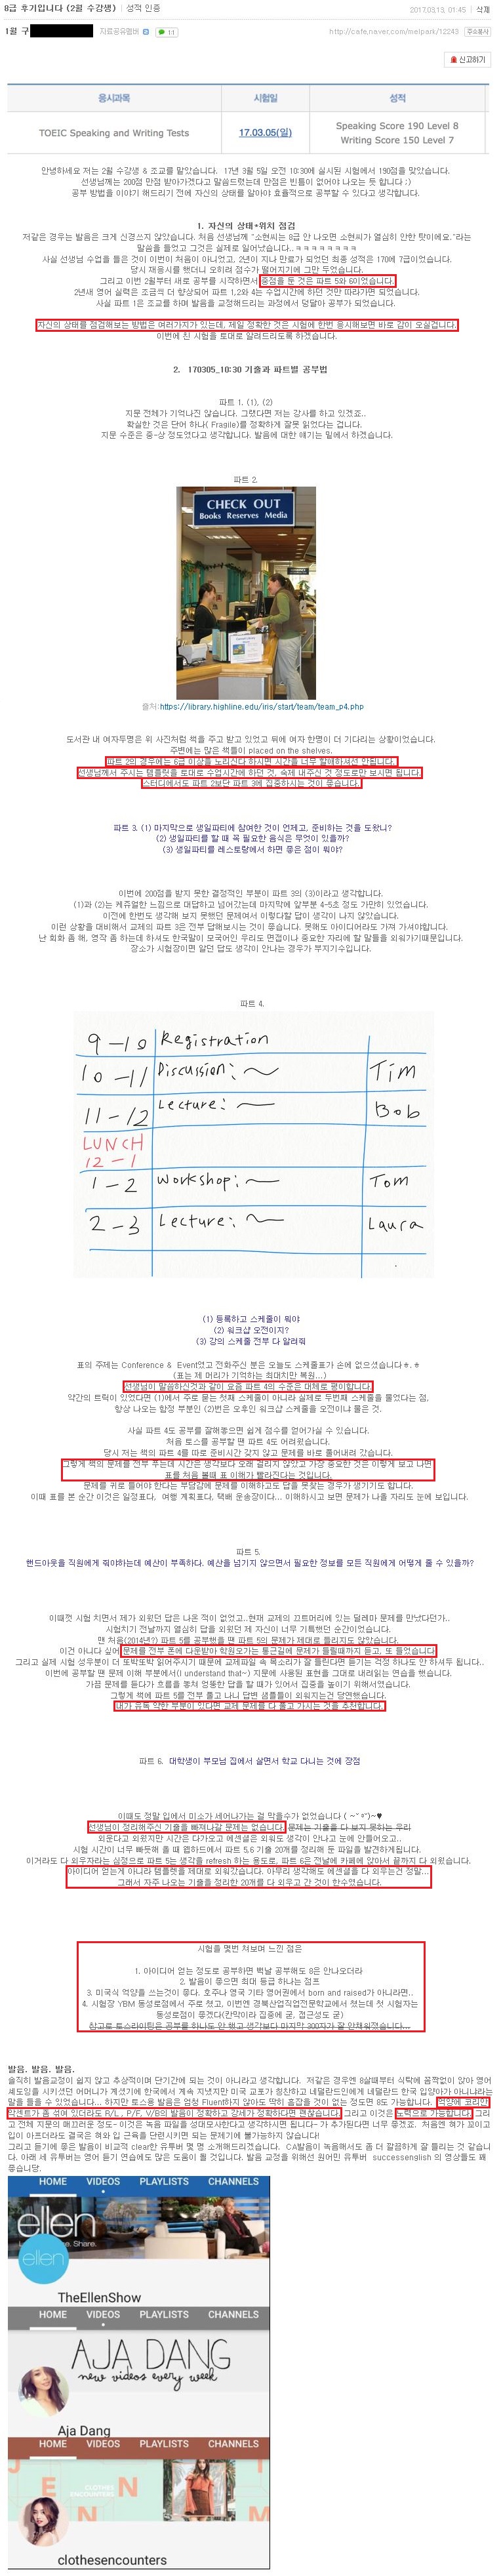 8급 후기입니다 (2월 수강생) | 성적 인증
2017.03.13. 01:45 | 삭제
1월 구
자료공유멤버
1:1
http://cafe.naver.com/melpark/12243
주소복사
신고하기
응시과목
시험일
성적
TOEIC Speaking and Writing Tests
17.03.05(일)
Speaking Score 190 Level 8
Writing Score 150 Level 7
안녕하세요 저는 2월 수강생 & 조교를 맡았습니다. 17년 3월 5일 오전 10:30에 실시된 시험에서 190점을 맞았습니다.
선생님께는 200점 만점 받아가겠다고 말씀드렸는데 만점은 빈틈이 없어야 나오는 듯 합니다 ;)
공부 방법을 이야기 해드리기 전에 자신의 상태를 알아야 효율적으로 공부할 수 있다고 생각합니다.
1. 자신의 상태+위치 점검
저같은 경우는 발음은 크게 신경쓰지 않았습니다. 처음 선생님께 "소현씨는 8급 안 나오면 소현씨가 열심히 안한 탓이에요."라는
말씀을 들었고 그것은 실제로 일어났습니다..ㅋㅋㅋㅋㅋㅋㅋㅋ
사실 선생님 수업을 들은 것이 이번이 처음이 아니었고, 2년이 지나 만료가 되었던 최종 성적은 170에 7급이었습니다.
당시 재응시를 했더니 오히려 점수가 떨어지기에 그만 두었습니다.
그리고 이번 2월부터 새로 공부를 시작하면서 중점을 둔 것은 파트 5와 6이었습니다.
2년새 영어 실력은 조금씩 더 향상되어 파트 1,2와 4는 수업시간에 하던 것만 따라가면 되었습니다.
사실 파트 1은 조교를 하며 발음을 교정해드리는 과정에서 덩달아 공부가 되었습니다.
자신의 상태를 점검해보는 방법은 여러가지가 있는데, 제일 정확한 것은 시험에 한번 응시해보면 바로 감이 오실겁니다.
이번에 친 시험을 토대로 알려드리도록 하겠습니다.
2. 170305_10:30 기출과 파트별 공부법
파트 1. (1), (2)
지문 전체가 기억나진 않습니다. 그랬다면 저는 강사를 하고 있겠죠..
확실한 것은 단어 하나( Fragile)를 정확하게 잘못 읽었다는 겁니다.
지문 수준은 중-상 정도였다고 생각합니다. 발음에 대한 얘기는 밑에서 하겠습니다.
파트 2.
CHECK OUT
Books Reserves Media
출처:https://library.highline.edu/iris/start/team/team_p4.php
도서관 내 여자두명은 위 사진처럼 책을 주고 받고 있었고 뒤에 여자 한명이 더 기다리는 상황이었습니다.
주변에는 많은 책들이 placed on the shelves.
파트 2의 경우에는 6급 이상을 노리신다 하시면 시간을 너무 할애하셔선 안됩니다.
선생님께서 주시는 템플릿을 토대로 수업시간에 하던 것, 숙제 내주신 것 정도로만 보시면 됩니다.
스터디에서도 파트 2보단 파트 3에 집중하시는 것이 좋습니다.
파트 3. (1) 마지막으로 생일파티에 참여한 것이 언제고, 준비하는 것을 도왔니?
(2) 생일파티를 할 때 꼭 필요한 음식은 무엇이 있을까?
(3) 생일파티를 레스토랑에서 하면 좋은 점이 뭐야?
이번에 200점을 받지 못한 결정적인 부분이 파트 3의 (3)이라고 생각합니다.
(1)과 (2)는 케쥬얼한 느낌으로 대답하고 넘어갔는데 마지막에 앞부분 4-5초 정도 가만히 있었습니다.
이전에 한번도 생각해 보지 못했던 문제여서 이렇다할 답이 생각이 나지 않았습니다.
이런 상황을 대비해서 교제의 파트 3은 전부 답해보시는 것이 좋습니다. 못해도 아이디어라도 가져 가셔야합니다.
난 회화 좀 해, 영작 좀 하는데 하셔도 한국말이 모국어인 우리도 면접이나 중요한 자리에 할 말들을 외워가기때문입니다.
장소가 시험장이면 알던 답도 생각이 안나는 경우가 부지기수입니다.
파트 4.
9-10 Registration
10-11 Discussion: Tim
11-12 Lecture: Bob
LUNCH
12-1
1-2 Workshop: Tom
2-3 Lecture: Laura
(1) 등록하고 스케줄이 뭐야
(2) 워크샵 오전이지?
(3) 강의 스케줄 전부 다 알려줘
표의 주제는 Conference & Event였고 전화주신 분은 오늘도 스케줄표가 손에 없으셨습니다ㅎ.ㅎ
(표는 제 머리가 기억하는 최대치만 복원...)
선생님이 말씀하신것과 같이 요즘 파트 4의 수준은 대체로 평이합니다.
약간의 트릭이 있었다면 (1)에서 주로 묻는 첫째 스케줄이 아니라 실제로 두번째 스케줄을 물었다는 점,
항상 나오는 함정 부분인 (2)번은 오후인 워크샵 스케줄을 오전이냐 물은 것.
사실 파트 4도 공부를 잘해놓으면 쉽게 점수를 얻어가실 수 있습니다.
처음 토스를 공부할 땐 파트 4도 어려웠습니다.
당시 저는 책의 파트 4를 따로 준비시간 갖지 않고 문제를 바로 풀어내려 갔습니다.
그렇게 책의 문제를 전부 푸는데 시간은 생각보다 오래 걸리지 않았고 가장 중요한 것은 이렇게 보고 나면
표를 처음 볼때 표 이해가 빨라진다는 것입니다.
문제를 귀로 들어야 한다는 부담감에 문제를 이해하고도 답을 못찾는 경우가 생기기도 합니다.
이때 표를 본 순간 이것은 일정표다, 여행 계획표다, 택배 운송장이다... 이해하시고 보면 문제가 나올 자리도 눈에 보입니다.
파트 5.
핸드아웃을 직원에게 줘야하는데 예산이 부족하다. 예산을 넘기지 않으면서 필요한 정보를 모든 직원에게 어떻게 줄 수 있을까?
이때껏 시험 치면서 제가 외웠던 답은 나온 적이 없었고..현재 교제의 끄트머리에 있는 딜레마 문제를 만났다던가..
시험치기 전날까지 열심히 답을 외웠던 제 자신이 너무 기특했던 순간이었습니다.
맨 처음(2014년?) 파트 5를 공부했을 땐 파트 5의 문제가 제대로 들리지도 않았습니다.
이건 아니다 싶어 문제를 전부 폰에 다운받아 학원오가는 통근길에 문제가 들릴때까지 듣고, 또 들었습니다.
그리고 실제 시험 성우분이 더 또박또박 읽어주시기 때문에 교제파일 속 목소리가 잘 들린다면 듣기는 걱정 하나도 안 하셔두 됩니다..
이번에 공부할 땐 문제 이해 부분에서(I understand that~) 지문에 사용된 표현을 그대로 내려읽는 연습을 했습니다.
가끔 문제를 듣다가 흐름을 놓쳐 엉뚱한 답을 할 때가 있어서 집중을 높이기 위해서였습니다.
그렇게 책에 파트 5를 전부 풀고 나니 답변 샘플들이 외워지는건 당연했습니다.
내가 유독 약한 부분이 있다면 교제 문제를 다 풀고 가시는 것을 추천합니다.
파트 6. 대학생이 부모님 집에서 살면서 학교 다니는 것에 장점
이때도 정말 입에서 미소가 세어나가는 걸 막을수가 없었습니다 ( ~˘³˘)~♥
선생님이 정리해주신 기출을 빠져나갈 문제는 없습니다. 문제는 기출을 다 보지 못하는 우리
외운다고 외웠지만 시간은 다가오고 에센셜은 외워도 생각이 안나고 눈에 안들어오고..
시험 시간이 너무 빠듯해 올 때 웹하드에서 파트 5,6 기출 20개를 정리해 둔 파일을 발견하게됩니다.
이거라도 다 외우자라는 심정으로 파트 5는 생각을 refresh 하는 용도로, 파트 6은 전날에 카페에 앉아서 끝까지 다 외웠습니다.
아이디어 얻는게 아니라 템플릿을 제대로 외워갔습니다. 아무리 생각해도 에센셜을 다 외우는건 정말...
그래서 자주 나오는 기출을 정리한 20개를 다 외우고 간 것이 한수였습니다.
시험을 몇번 쳐보며 느낀 점은
1. 아이디어 얻는 정도로 공부하면 백날 공부해도 8은 안나오더라
2. 발음이 좋으면 최대 등급 하나는 점프
3. 미국식 억양을 쓰는것이 좋다. 호주나 영국 기타 영어권에서 born and raised가 아니라면..
4. 시험장 YBM 동성로점에서 주로 쳤고, 이번엔 경북산업직업전문학교에서 쳤는데 첫 시험자는
동성로점이 좋겠다(칸막이라 집중에 굳, 접근성도 굳)
참고로 토스라이팅은 공부를 하나도 안 했고 생각보다 마지막 300자가 잘 안채워졌습니다...
발음. 발음. 발음.
솔직히 발음교정이 쉽지 않고 추상적이며 단기간에 되는 것이 아니라고 생각합니다. 저같은 경우엔 8살때부터 식탁에 꼼짝없이 앉아 영어
셰도잉을 시키셨던 어머니가 계셨기에 한국에서 계속 지냈지만 미국 교포가 칭찬하고 네덜란드인에게 네덜란드 한국 입양아가 아니냐라는
말을 들을 수 있었습니다... 하지만 토스용 발음은 엄청 Fluent하지 않아도 딱히 흠잡을 것이 없는 정도면 8도 가능합니다. 억양에 코리안
악센트가 좀 섞여 있더라도 R/L , P/F, V/B의 발음이 정확하고 강세가 정확하다면 괜찮습니다. 그리고 이것은 노력으로 가능합니다. 그리
고 전체 지문의 매끄러운 정도- 이것은 녹음 파일을 성대모사한다고 생각하시면 됩니다- 가 추가된다면 너무 좋겠죠. 처음엔 혀가 꼬이고
입이 아프더라도 결국은 혀와 입 근육을 단련시키면 되는 문제기에 불가능하지 않습니다!
그리고 듣기에 좋은 발음이 비교적 clear한 유투버 몇 명 소개해드리겠습니다. CA발음이 녹음해서도 좀 더 깔끔하게 잘 들리는 것 같습니
다. 아래 세 유투버는 영어 듣기 연습에도 많은 도움이 될 것입니다. 발음 교정을 위해선 원어민 유투버 successenglish 의 영상들도 꽤
좋습니당.
HOME VIDEOS PLAYLISTS CHANNELS
ellen
Share.
ellen
TheEllenShow
HOME VIDEOS PLAYLISTS CHANNELS
AJA DANG
new videos every week
Aja Dang
HOME VIDEOS PLAYLISTS CHANNELS
CLOTHES
ENCOUNTERS
clothesencounters